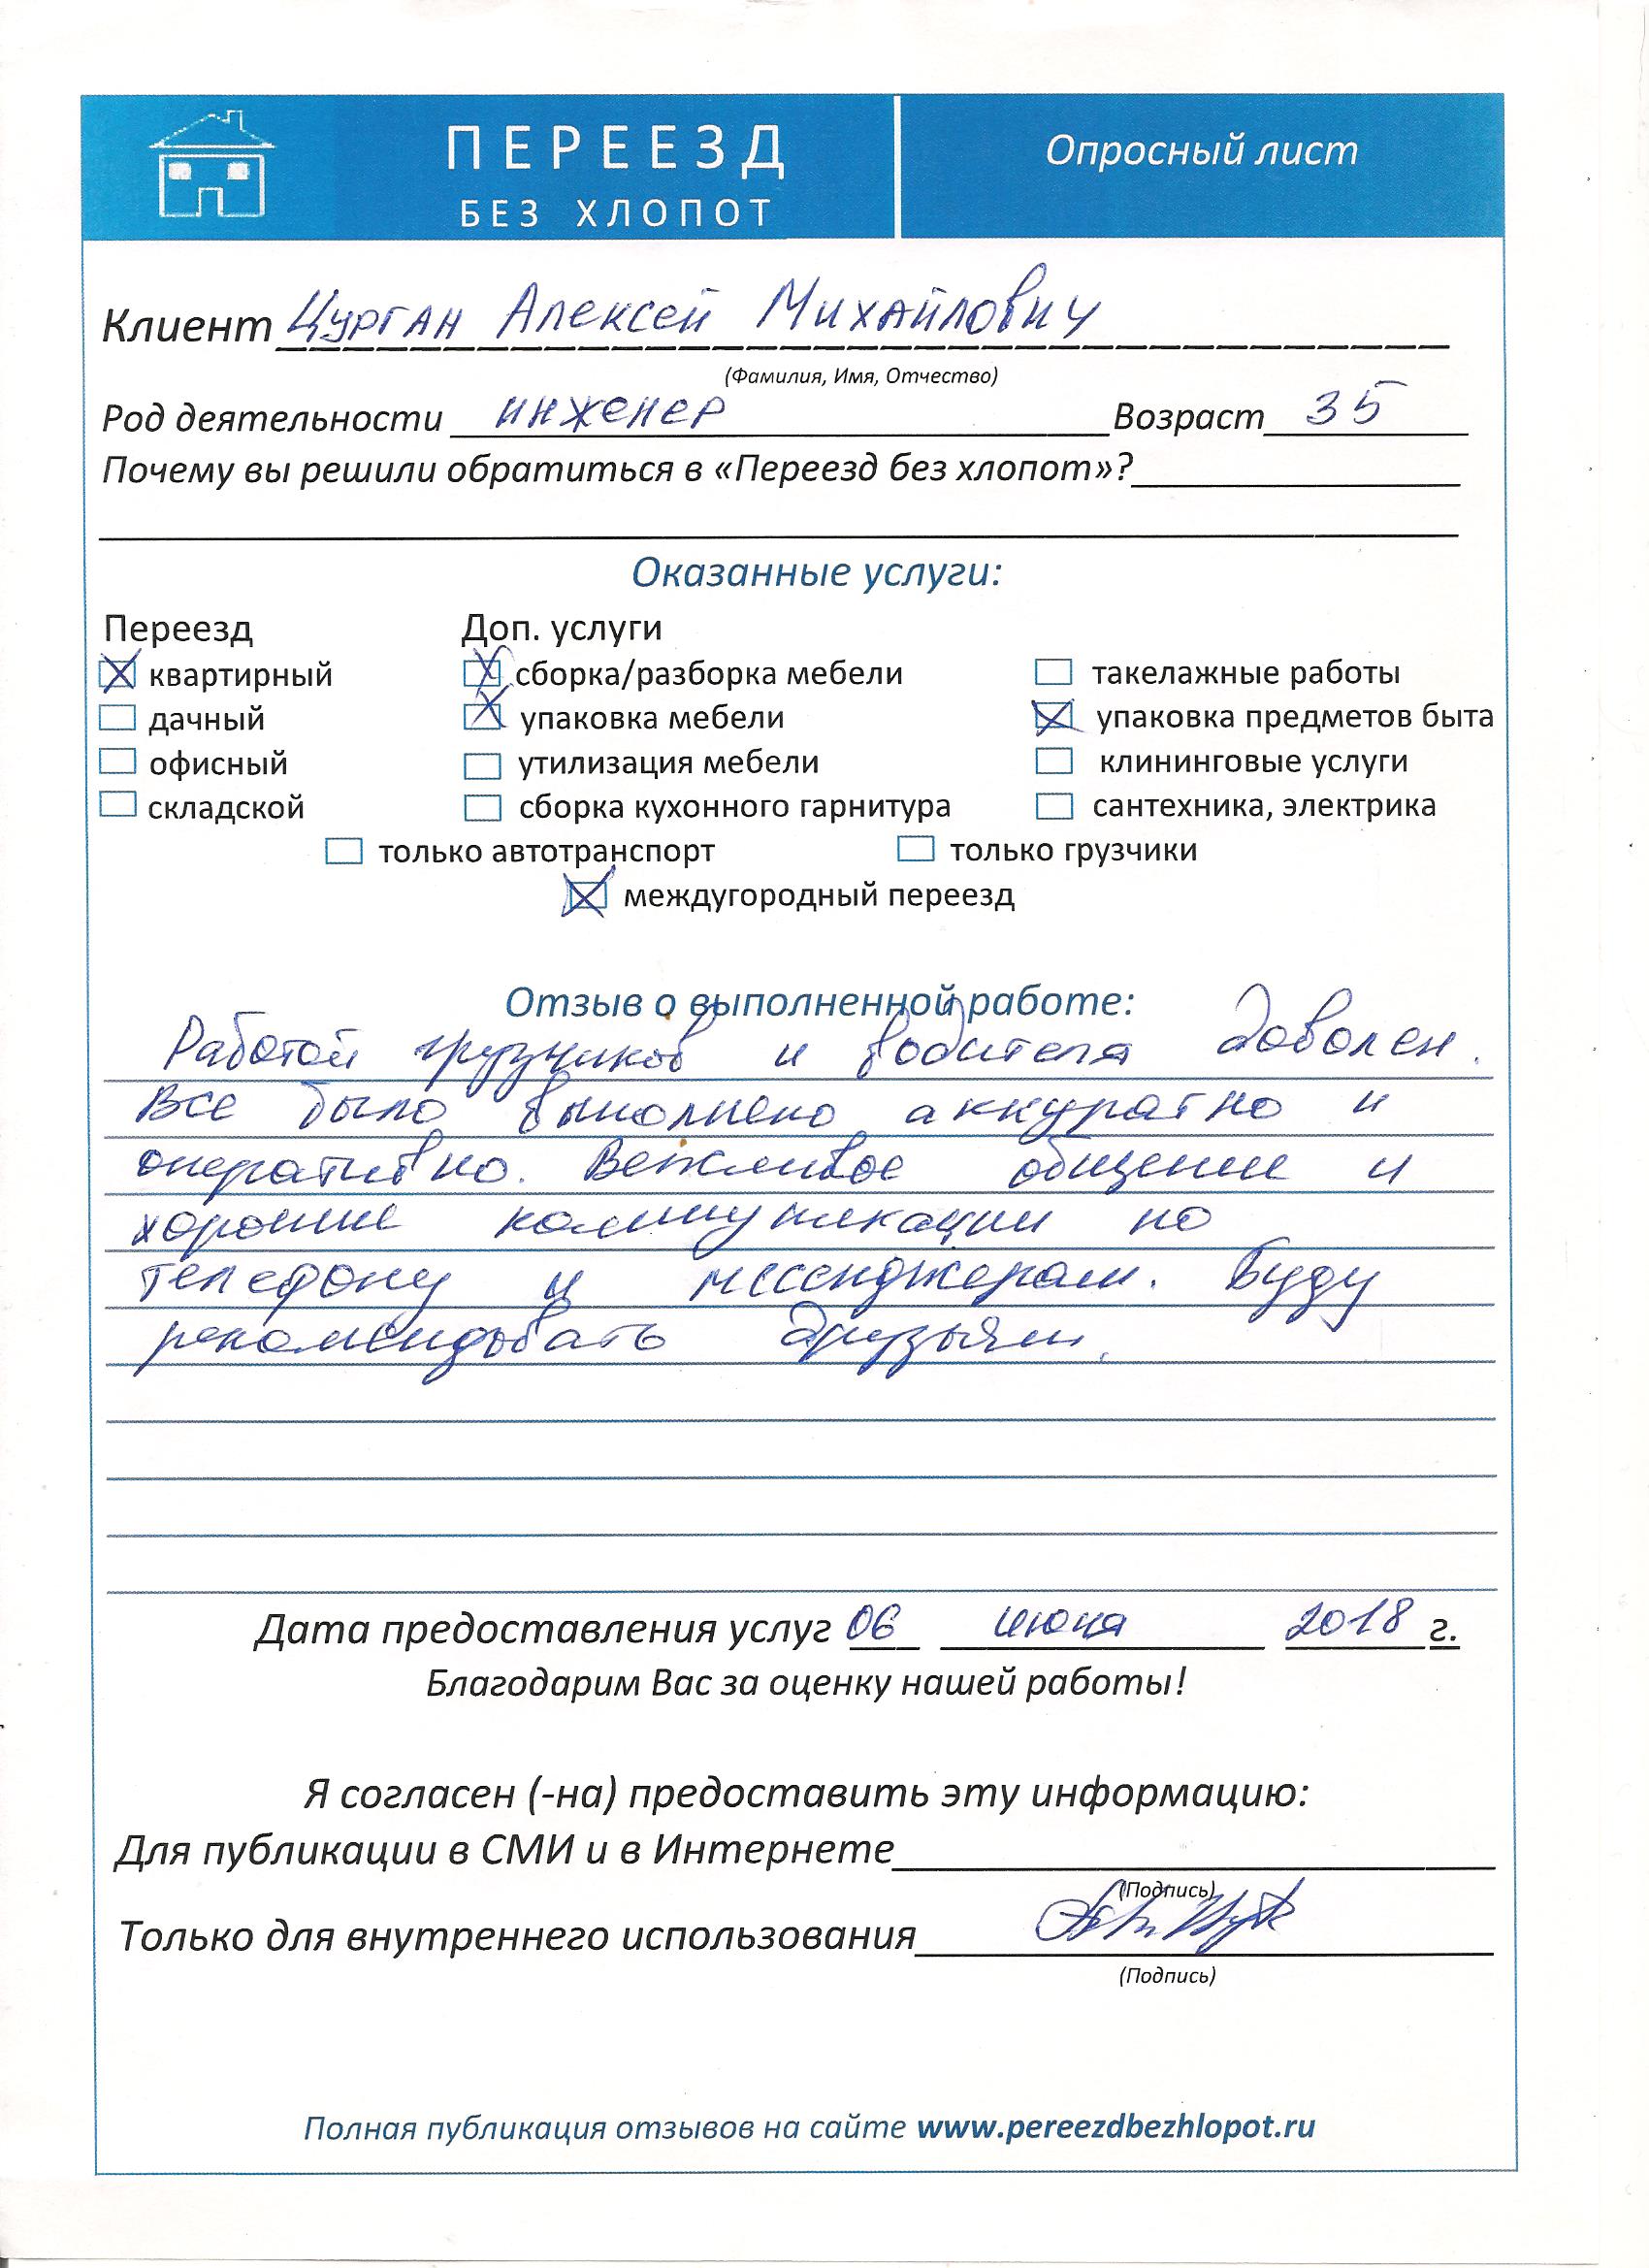 ПЕРЕЕЗД
БЕЗ ХЛОПОТ
Опросный лист
Клиент Цурган Алексей Михайлович
(Фамилия, Имя, Отчество)
Род деятельности инженер Возраст 35
Почему вы решили обратиться в «Переезд без хлопот»?
Оказанные услуги:
Переезд Доп. услуги
квартирный сборка/разборка мебели такелажные работы
дачный упаковка мебели упаковка предметов быта
офисный утилизация мебели клининговые услуги
складской сборка кухонного гарнитура сантехника, электрика
только автотранспорт только грузчики
междугородный переезд
Отзыв о выполненной работе:
Работой грузчиков и водителя доволен.
Все было выполнено аккуратно и
оперативно. Вежливое общение и
хорошие коммуникации по
телефону и мессенджерам. Буду
рекомендовать друзьям.
Дата предоставления услуг 06 июня 2018 г.
Благодарим Вас за оценку нашей работы!
Я согласен (-на) предоставить эту информацию:
Для публикации в СМИ и в Интернете
(Подпись)
Только для внутреннего использования
(Подпись)
Полная публикация отзывов на сайте www.pereezdbezhlopot.ru